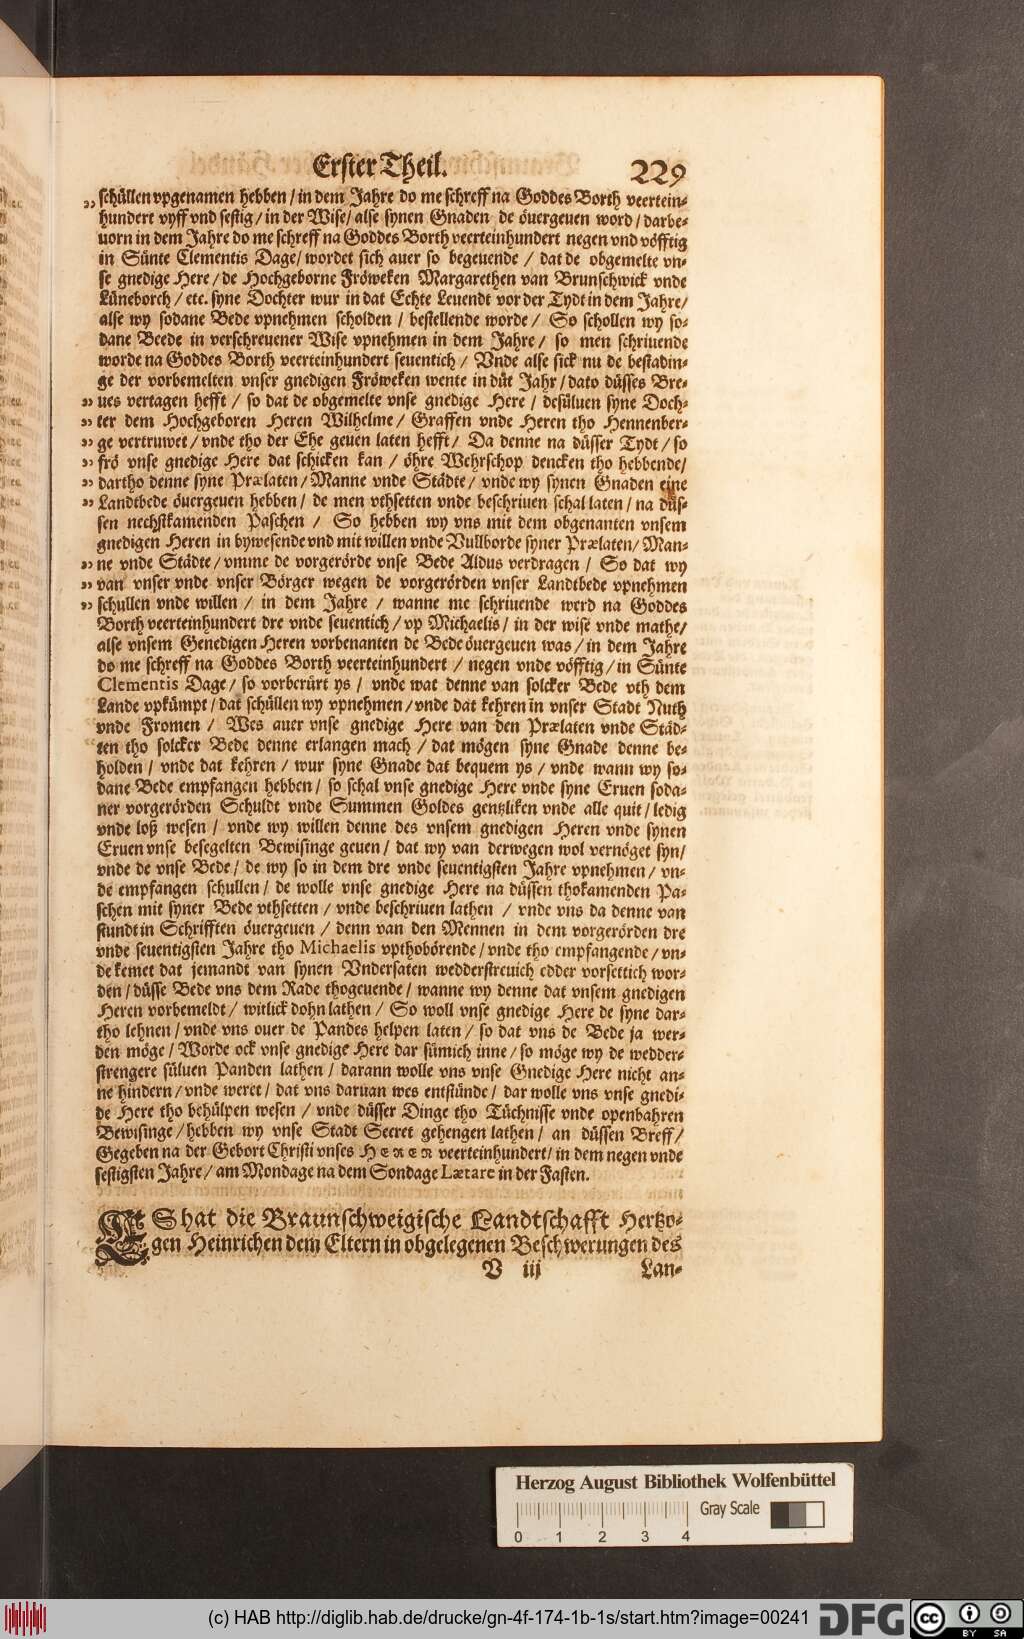 Erster Theil. 229
schüllen vpgenamen hebben / in dem Jahre do me schreff na Goddes Borth veertein-
hundert vyff vnd sestig / in der Wise / alse synen Gnaden de övergeuen word / darbe-
uorn in dem Jahre do me schreff na Goddes Borth veerteinhundert negen vnd vöfftig
in Sünte Clementis Dage / wordet sich auer so begeuende / dat de obgemelte vn-
se gnedige Here / de Hochgeborne Fröweken Margarethen van Brunschwick vnde
Lüneborch / etc. syne Dochter wur in dat Echte Leuendt vor der Tydt in dem Jahre /
alse wy sodane Bede vpnehmen scholden / bestellende worde / So schollen wy so-
dane Beede in verschreuener Wise vpnehmen in dem Jahre / so men schriuende
worde na Goddes Borth veerteinhundert seuentich / Vnde alse sick nu de bestadin-
ge der vorbemelten vnser gnedigen Fröweken wente in düt Jahr / dato düsses Bre-
ues vertagen hefft / so dat de obgemelte vnse gnedige Here / desüluen syne Doch-
ter dem Hochgeboren Heren Wilhelme / Graffen vnde Heren tho Hennenber-
ge vertruwet / vnde tho der Ehe geuen laten hefft / Da denne na düsser Tydt / so
frö vnse gnedige Here dat schicken kan / öhre Wehrschop dencken tho hebbende /
dartho denne syne Prælaten / Manne vnde Städte / vnde wy synen Gnaden eine
Landtbede övergeuen hebben / de men vthsetten vnde beschriuen schal laten / na düs-
sen nechstkamenden Paschen / So hebben wy vns mit dem obgenanten vnsem
gnedigen Heren in bywesende vnd mit willen vnde Vullborde syner Prælaten / Man-
ne vnde Städte / vmme de vorgerörde vnse Bede Aldus verdragen / So dat wy
van vnser vnde vnser Börger wegen de vorgerörden vnser Landtbede vpnehmen
schullen vnde willen / in dem Jahre / wanne me schriuende werd na Goddes
Borth veerteinhundert dre vnde seuentich / vp Michaelis / in der wise vnde mathe /
alse vnsem Genedigen Heren vorbenanten de Bede övergeuen was / in dem Jahre
do me schreff na Goddes Borth veerteinhundert / negen vnde vöfftig / in Sünte
Clementis Dage / so vorberürt ys / vnde wat denne van solcker Bede vth dem
Lande vpkümpt / dat schüllen wy vpnehmen / vnde dat kehren in vnser Stadt Nuth
vnde Fromen / Wes auer vnse gnedige Here van den Prælaten vnde Städ-
ten tho solcker Bede denne erlangen mach / dat mögen syne Gnade denne be-
holden / vnde dat kehren / wur syne Gnade dat bequem ys / vnde wann wy so-
dane Bede empfangen hebben / so schal vnse gnedige Here vnde syne Eruen soda-
ner vorgerörden Schuldt vnde Summen Goldes gentzliken vnde alle quit / ledig
vnde loß wesen / vnde wy willen denne des vnsem gnedigen Heren vnde synen
Eruen vnse besegelten Bewisinge geuen / dat wy van derwegen wol vernöget syn /
vnde de vnse Bede / de wy so in dem dre vnde seuentigsten Jahre vpnehmen / vn-
de empfangen schullen / de wolle vnse gnedige Here na düssen thokamenden Pa-
schen mit syner Bede vthsetten / vnde beschriuen lathen / vnde vns da denne van
stundt in Schrifften övergeuen / denn van den Mennen in dem vorgerörden dre
vnde seuentigsten Jahre tho Michaelis vpthobörende / vnde tho empfangende / vn-
de kemet dat jemandt van synen Vndersaten wedderstreuich edder vorsettich wor-
den / düsse Bede vns dem Rade thogeuende / wanne wy denne dat vnsem gnedigen
Heren vorbemeldt / witlick dohn lathen / So woll vnse gnedige Here de syne dar-
tho lehnen / vnde vns ouer de Pandes helpen laten / so dat vns de Bede ja wer-
den möge / Worde ock vnse gnedige Here dar sümich inne / so möge wy de wedder-
strengere süluen Panden lathen / darann wolle vns vnse Gnedige Here nicht an-
ne hindern / vnde weret / dat vns daruan wes entstünde / dar wolle vns vnse gnedi-
de Here tho behülpen wesen / vnde düsser Dinge tho Tüchnisse vnde openbahren
Bewisinge / hebben wy vnse Stadt Secret gehengen lathen / an düssen Breff /
Gegeben na der Gebort Christi vnses HEREN veerteinhundert / in dem negen vnde
sestigsten Jahre / am Mondage na dem Sondage Lætare in der Fasten.
ES hat die Braunschweigische Landtschafft Hertzo-
gen Heinrichen dem Eltern in obgelegenen Beschwerungen des
V iij Lan-
Herzog August Bibliothek Wolfenbüttel
Gray Scale
0 1 2 3 4
(c) HAB http://diglib.hab.de/drucke/gn-4f-174-1b-1s/start.htm?image=00241 DFG cc BY SA